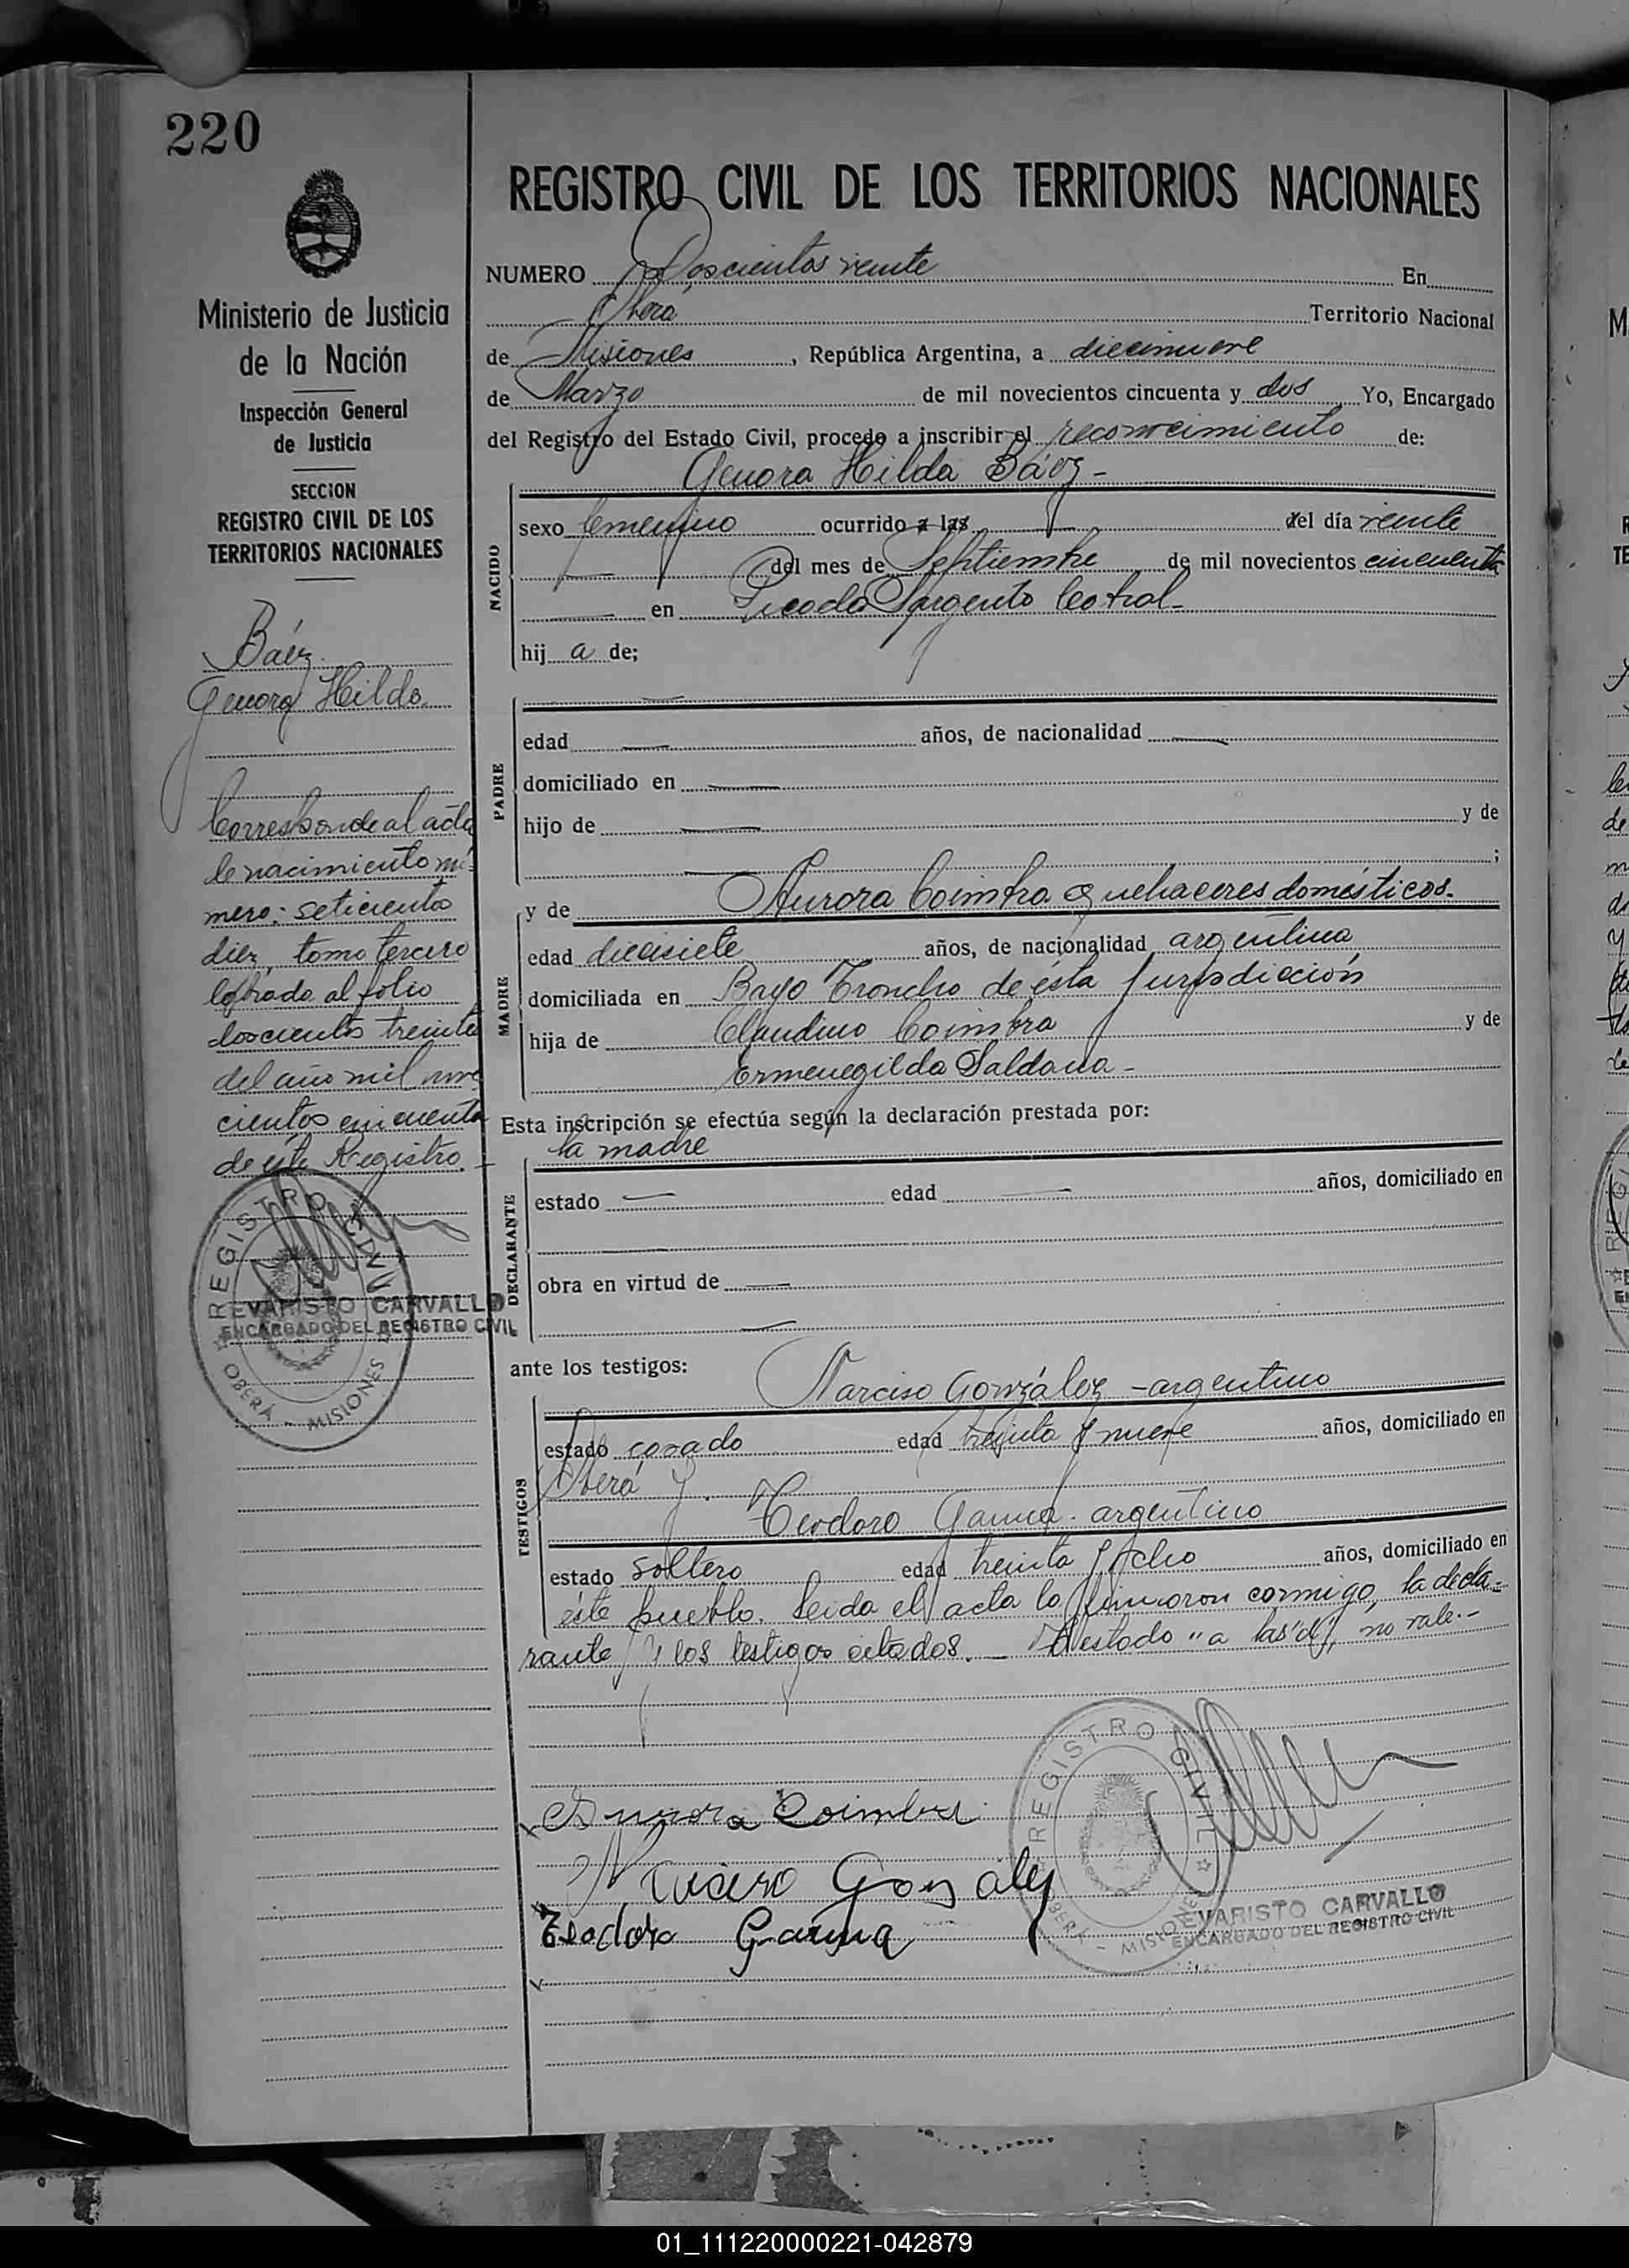 220
Ministerio de Justicia
de la Nación
Inspección General
de Justicia
SECCION
REGISTRO CIVIL DE LOS
TERRITORIOS NACIONALES
Báez
Genora Hilda
Corresponde al acta
de nacimiento nú-
mero: setecientos
diez, tomo tercero
labrada al folio
doscientos treinta
del año mil nove
cientos cincuenta
de éste Registro.-
REGISTRO CIVIL
OBERÁ - MISIONES
EVARISTO CARVALLO
ENCARGADO DEL REGISTRO CIVIL
REGISTRO CIVIL DE LOS TERRITORIOS NACIONALES
NUMERO Doscientos veinte En
Oberá Territorio Nacional
de Misiones, República Argentina, a diecinueve
de Marzo de mil novecientos cincuenta y dos Yo, Encargado
del Registro del Estado Civil, procedo a inscribir el reconocimiento de:
Genora Hilda Báez-
NACIDO
sexo femenino ocurrido a las del día veinte
del mes de Septiembre de mil novecientos cincuenta
en Picada Sargento
hij a de;
PADRE
edad años, de nacionalidad
domiciliado en
hijo de y de
;
y de Aurora Coimbra quehaceres domésticos.
MADRE
edad diecisiete años, de nacionalidad argentina
domiciliada en Bayo Troncho de ésta jurisdicción
hija de Claudino Coimbra y de
Ermenegilda Saldaña-
Esta inscripción se efectúa según la declaración prestada por:
la madre
DECLARANTE
estado edad años, domiciliado en
obra en virtud de
ante los testigos:
Narciso González - argentino
TESTIGOS
estado casado edad treinta y nueve años, domiciliado en
Oberá y.
Teodoro Gauna. argentino
estado soltero edad treinta y ocho años, domiciliado en
éste pueblo. Leida el acta la firmaron conmigo, la decla-
rante y los testigos citados.- Testado "a las "d", no vale.-
Aurora Coimbra
Narciso Gonzalez
Teodoro Gauna
REGISTRO CIVIL
OBERÁ - MISIONES
EVARISTO CARVALLO
ENCARGADO DEL REGISTRO CIVIL
01_111220000221-042879